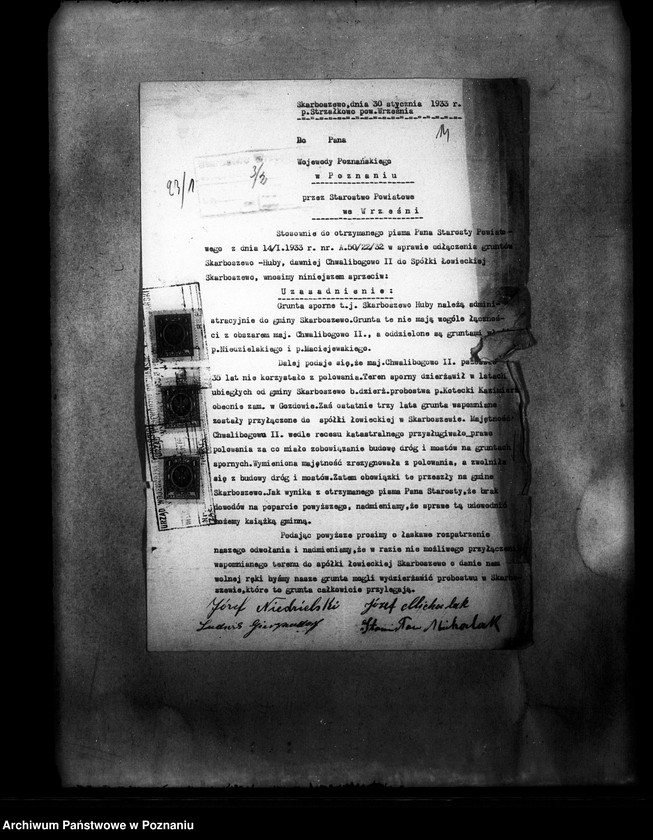 Skarboszewo,dnia 30 stycznia 1933 r.
p.Strzałkowo pow.Września
Do Pana
Wojewody Poznańskiego
w Poznaniu
przez Starostwo Powiatowe
we Wrześni
93/1
3/2
Stosownie do otrzymanego pisma Pana Starosty Powiato-
wego z dnia 14/I.1933 r. nr. A.50/22/32 w sprawie odłączenia gruntów
Skarboszewo -Huby, dawniej Chwalibogowo II do Spółki Łowieckiej
Skarboszewo, wnosimy niniejszem sprzeciw:
Uzasadnienie:
Grunta sporne t.j. Skarboszewo Huby należą admini-
stracyjnie do gminy Skarboszewo.Grunta te nie mają wogóle łącznoś-
ci z obszarem maj. Chwalibogowo II., a oddzielone są gruntami
p.Niedzielskiego i p.Maciejewskiego.
Dalej podaje się,że maj.Chwalibogowo II.
35 lat nie korzystało z polowania.Teren sporny dzierżawił w latach
ubiegłych od gminy Skarboszewo b.dzierż.probostwa p.Kotecki Kazimierz
obecnie zam. w Gozdowie.Zaś ostatnie trzy lata grunta wspomniane
zostały przyłączone do spółki łowieckiej w Skarboszewie. Majętność
Chwalibogowo II. wedle recesu katastralnego przysługiwało prawo
polowania za co miało zobowiązanie budowę dróg i mostów na gruntach
spornych.Wymieniona majętność zrezygnowała z polowania, a zwolniła
się z budowy dróg i mostów.Zatem obowiązki te przeszły na gminę
Skarboszewo.Jak wynika z otrzymanego pisma Pana Starosty,że brak
dowodów na poparcie powyższego, nadmieniamy,że sprawę tą udowodnić
możemy książką gminną.
Podając powyższe prosimy o łaskawe rozpatrzenie
naszego odwołania i nadmieniamy,że w razie nie możliwego przyłączenia
wspomnianego terenu do spółki łowieckiej Skarboszewo o danie nam
wolnej ręki byśmy nasze grunta mogli wydzierżawić probostwu w Skarbo-
szewie,które to grunta całkowicie przylegają.
Józef Niedzielski Józef Michalak
Ludwik Stanisław Michalak
URZĄD
Archiwum Państwowe w Poznaniu